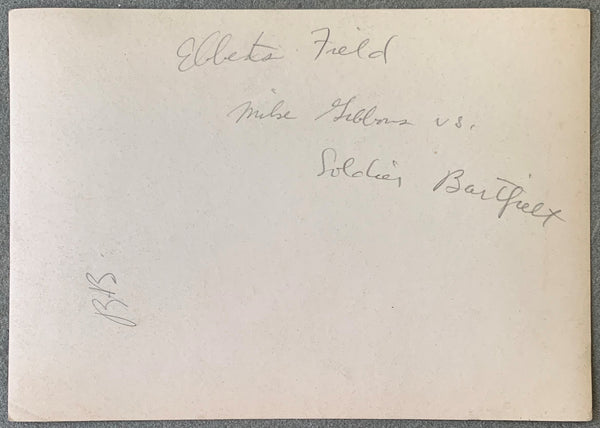 Ebbets Field
Mike Gibbons vs.
Soldier Bartfield
B+B